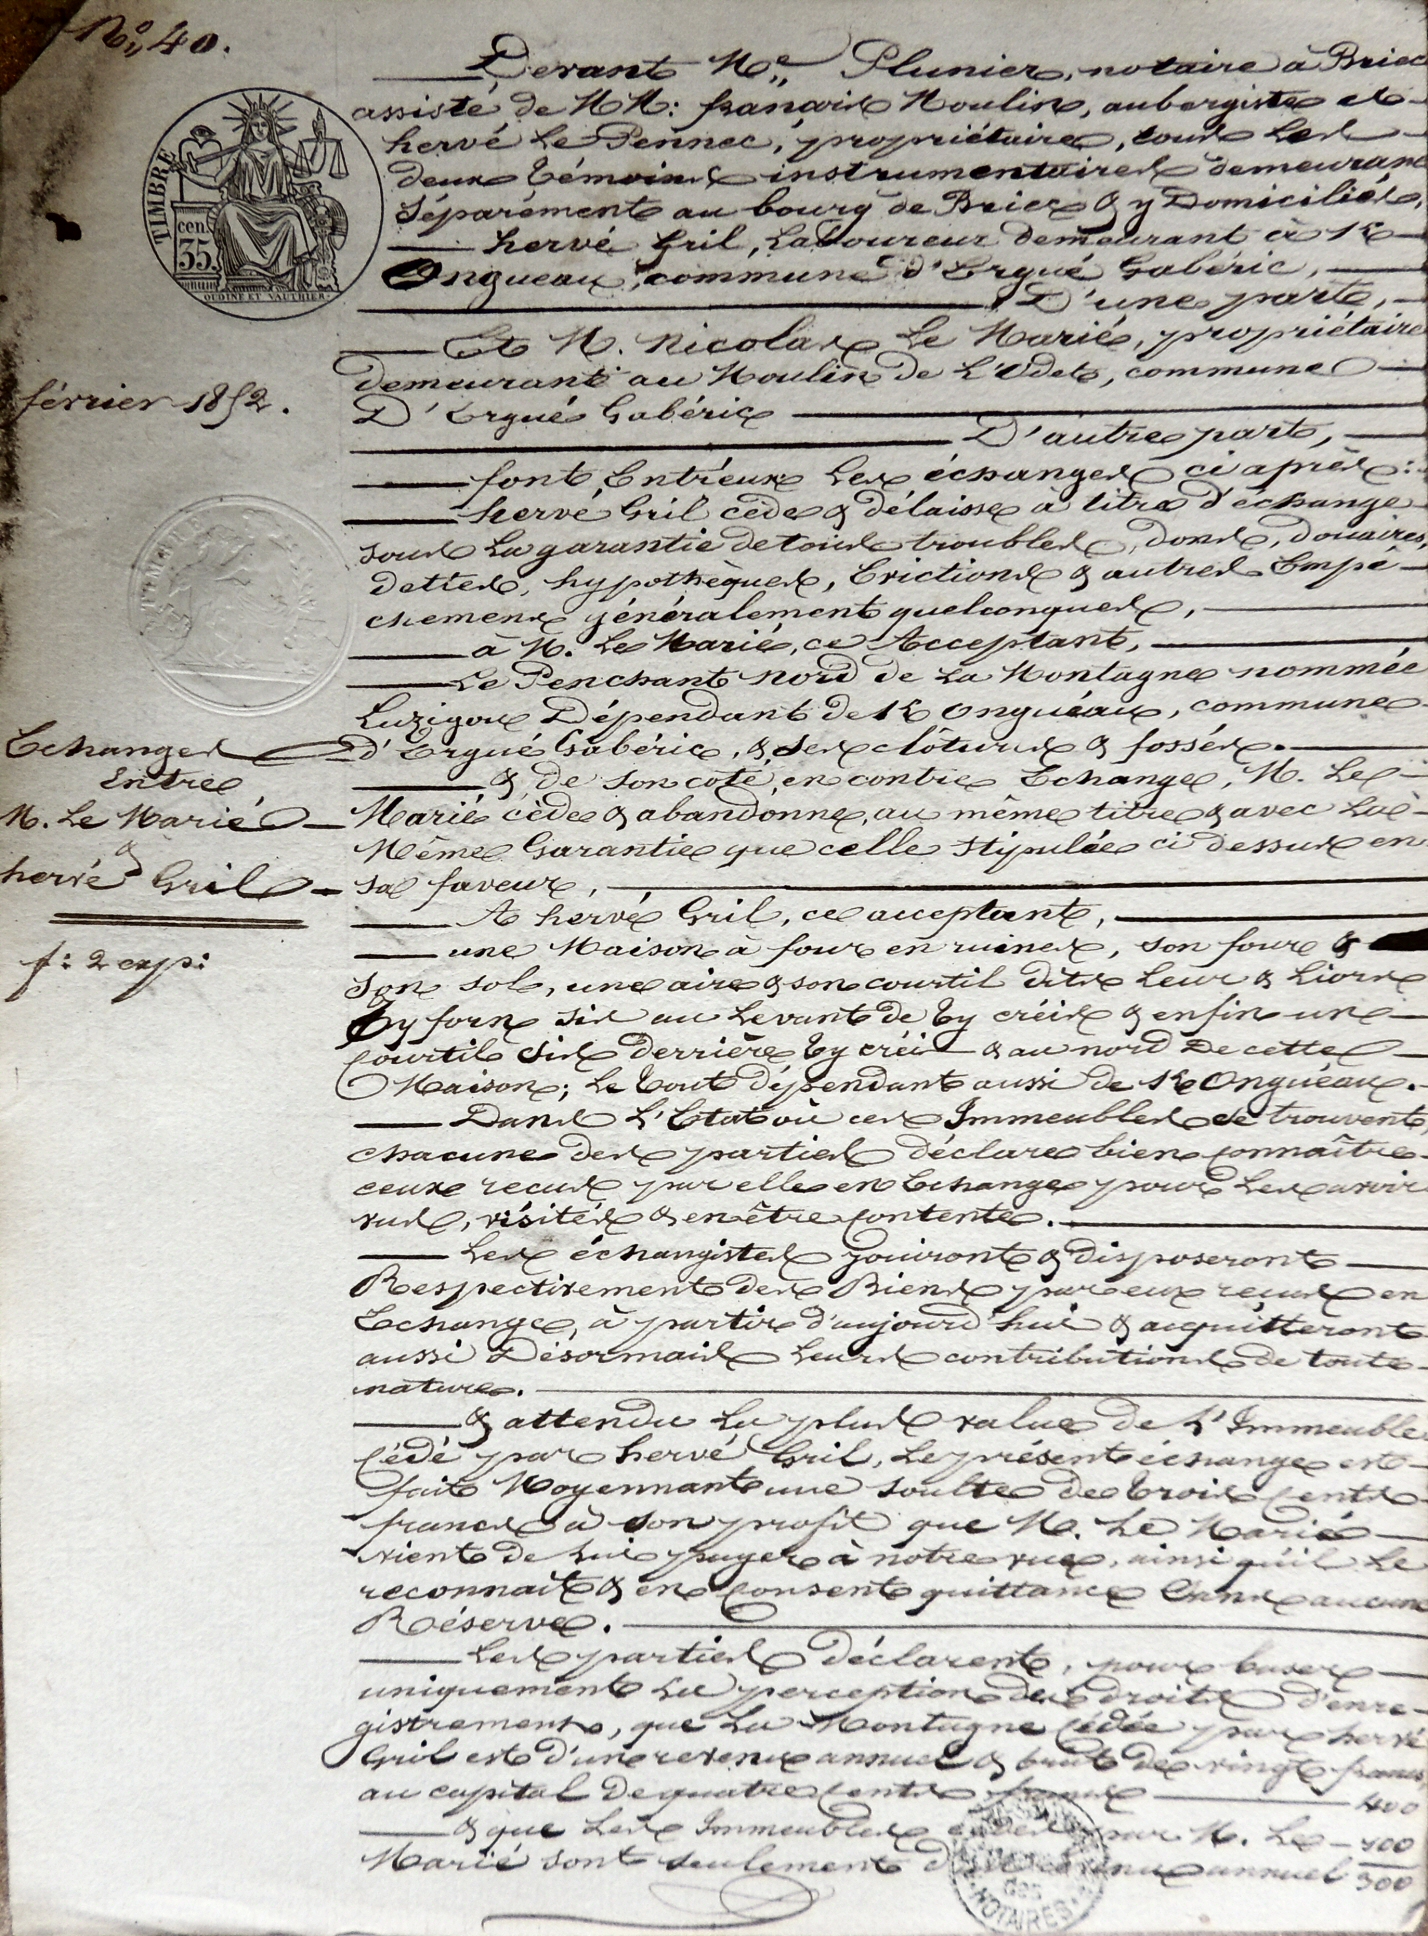 N° 40.
Devant Me Plunier, notaire à Briec
assisté de MM: françois Moulin, aubergiste et
hervé Le Pennec, propriétaire, tous les
deux témoins instrumentaires demeurant
séparément au bourg de Briec & y Domiciliés,
hervé Gril, Laboureur demeurant à Kr
Ongueau, commune d'Ergué Gabéric,
D'une part,
Et M. Nicolas Le Marié, propriétaire
demeurant au Moulin de L'Odet, commune
D'Ergué Gabéric
D'autre part,
font Entr'eux Les échanges ci après:
hervé Gril cède & délaisse à titre d'échange
sous La garantie de tous troubles, dons, douaires,
dettes, hypothèques, Evictions & autres Empê-
chemens généralement quelconques,
à M. Le Marié, ce Acceptant,
Le Penchant nord de La Montagne nommée
Luzigou Dépendant de Kr Onguéau, commune
d'Ergué Gabéric, & ses clôtures & fossés.
& de son coté, en contre Echange, M. Le
Marié cède & abandonne, au même titre & avec La
Même Garantie que celle stipulée ci dessus en
sa faveur,
A hervé Gril, ce acceptant,
une Maison à four en ruines, son four &
son sol, une aire & son courtil dits Leur & Liors
Ty forn sis au Levant de Ty créis & enfin un
Courtil sis derrière Ty créis & au nord de cette
Maison; Le Tout dépendant aussi de Kr Onguéau.
Dans L'Etat où ces Immeubles se trouvent,
chacune des parties déclare bien connaître
ceux reçus par elle en Echange pour Les avoir
vus, visités & en être contente.
Les échangistes jouiront & disposeront
Respectivement des Biens par eux reçus en
Echange, à partir d'aujourd'hui & acquitteront
aussi Désormais Leurs contributions de toute
nature.
& attendu La plus value de L'Immeuble
Cédé par hervé Gril, Le présent échange est
fait Moyennant une soulte de Trois Cents
francs à son profit que M. Le Marié
vient de Lui payer à notre vue, ainsi qu'il Le
reconnait & en Consent quittance Sans aucune
Réserve.
Les parties déclarent, pour baser
uniquement La perception des droits d'enre-
gistrement, que La Montagne Cédée par hervé
Gril est d'un revenu annuel & brut de vingt francs
au capital de quatre Cents francs 400
& que Les Immeubles cédés par M. Le 100
Marié sont seulement d'un revenu annuel 300
février 1852.
Echanges
Entre
M. Le Marié
&
hervé Gril
f: 2 exp:
TIMBRE
cen.
35.
OUDINÉ ET VAUTHIER
NOTAIRES